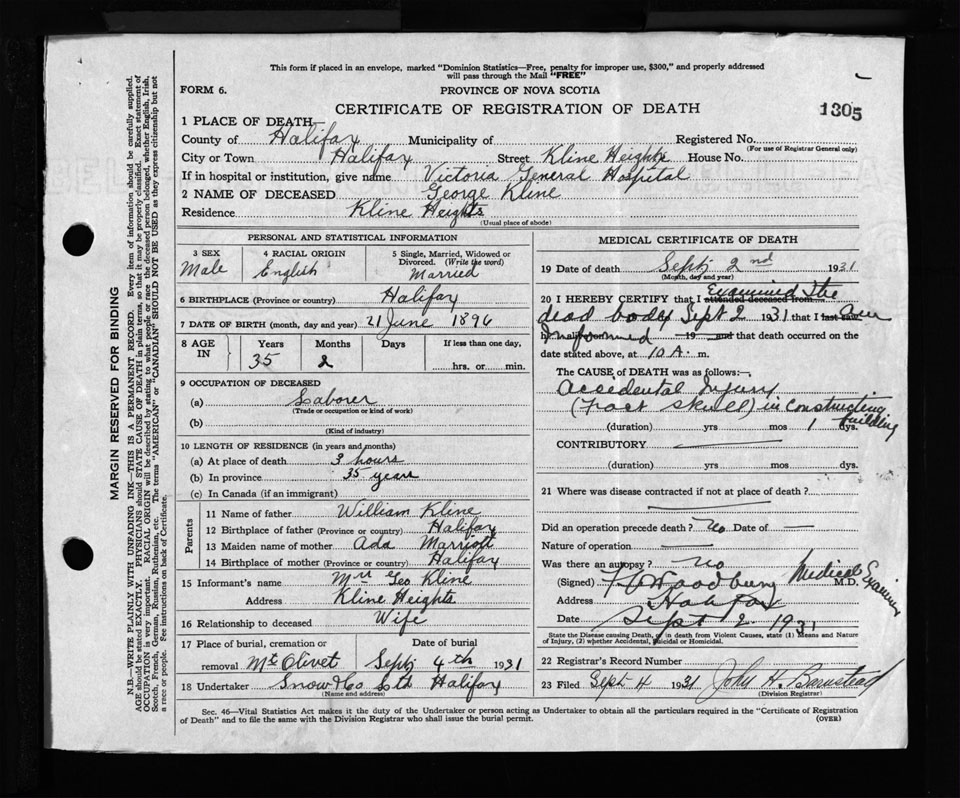 This form if placed in an envelope, marked "Dominion Statistics—Free, penalty for improper use, $300," and properly addressed
will pass through the Mail "FREE"
FORM 6. PROVINCE OF NOVA SCOTIA
CERTIFICATE OF REGISTRATION OF DEATH 1305
1 PLACE OF DEATH
County of Halifax Municipality of Registered No.
(For use of Registrar General only)
City or Town Halifax Street Kline Heights House No.
If in hospital or institution, give name Victoria General Hospital
2 NAME OF DECEASED George Kline
Residence Kline Heights
(Usual place of abode)
MARGIN RESERVED FOR BINDING
N.B.—WRITE PLAINLY WITH UNFADING INK—THIS IS A PERMANENT RECORD. Every item of information should be carefully supplied.
AGE should be stated EXACTLY. PHYSICIANS should STATE CAUSE OF DEATH in plain terms, so that it may be properly classified. Exact statement of
OCCUPATION is very important. RACIAL ORIGIN will be described by stating to what people or race the deceased person belonged, whether English, Irish,
Scotch, French, German, Russian, Ruthenian, etc. The terms "AMERICAN" or "CANADIAN" SHOULD NOT BE USED as they express citizenship but not
a race or people. See instructions on back of Certificate.
PERSONAL AND STATISTICAL INFORMATION
3 SEX
Male
4 RACIAL ORIGIN
English
5 Single, Married, Widowed or
Divorced. (Write the word)
Married
6 BIRTHPLACE (Province or country) Halifax
7 DATE OF BIRTH (month, day and year) 21 June 1896
8 AGE IN Years Months Days If less than one day,
35 2 hrs. or min.
9 OCCUPATION OF DECEASED
(a) Laborer
(Trade or occupation or kind of work)
(b)
(Kind of industry)
10 LENGTH OF RESIDENCE (in years and months)
(a) At place of death 3 hours
(b) In province 35 years
(c) In Canada (if an immigrant)
Parents
11 Name of father William Kline
12 Birthplace of father (Province or country) Halifax
13 Maiden name of mother Ada Marriott
14 Birthplace of mother (Province or country) Halifax
15 Informant's name Mrs Geo Kline
Address Kline Heights
16 Relationship to deceased Wife
17 Place of burial, cremation or Date of burial
removal Mt Olivet Sept 4th 1931
18 Undertaker Snow & Co Ltd Halifax
(Name and address)
MEDICAL CERTIFICATE OF DEATH
19 Date of death Sept 2nd 1931
(Month, day and year)
20 I HEREBY CERTIFY that I attended deceased from Examined the
dead body Sept 2 1931 that I last saw am
h Informed 19 and that death occurred on the
date stated above, at 10 A. m.
The CAUSE of DEATH was as follows:—
Accidental Injury
(Fract skull) in constructing
building
(duration) yrs mos 1 dys.
CONTRIBUTORY
(duration) yrs mos dys.
21 Where was disease contracted if not at place of death?
Did an operation precede death? No Date of —
Nature of operation —
Was there an autopsy? No
(Signed) Woodbury Medical Examiner M.D.
Address Halifax
Date Sept 2 1931
State the Disease causing Death, or in death from Violent Causes, state (1) Means and Nature
of Injury, (2) whether Accidental, Suicidal or Homicidal.
22 Registrar's Record Number
23 Filed Sept 4 1931 John H. Barnstead
(Division Registrar)
Sec. 46—Vital Statistics Act makes it the duty of the Undertaker or person acting as Undertaker to obtain all the particulars required in the "Certificate of Registration
of Death" and to file the same with the Division Registrar who shall issue the burial permit. (OVER)